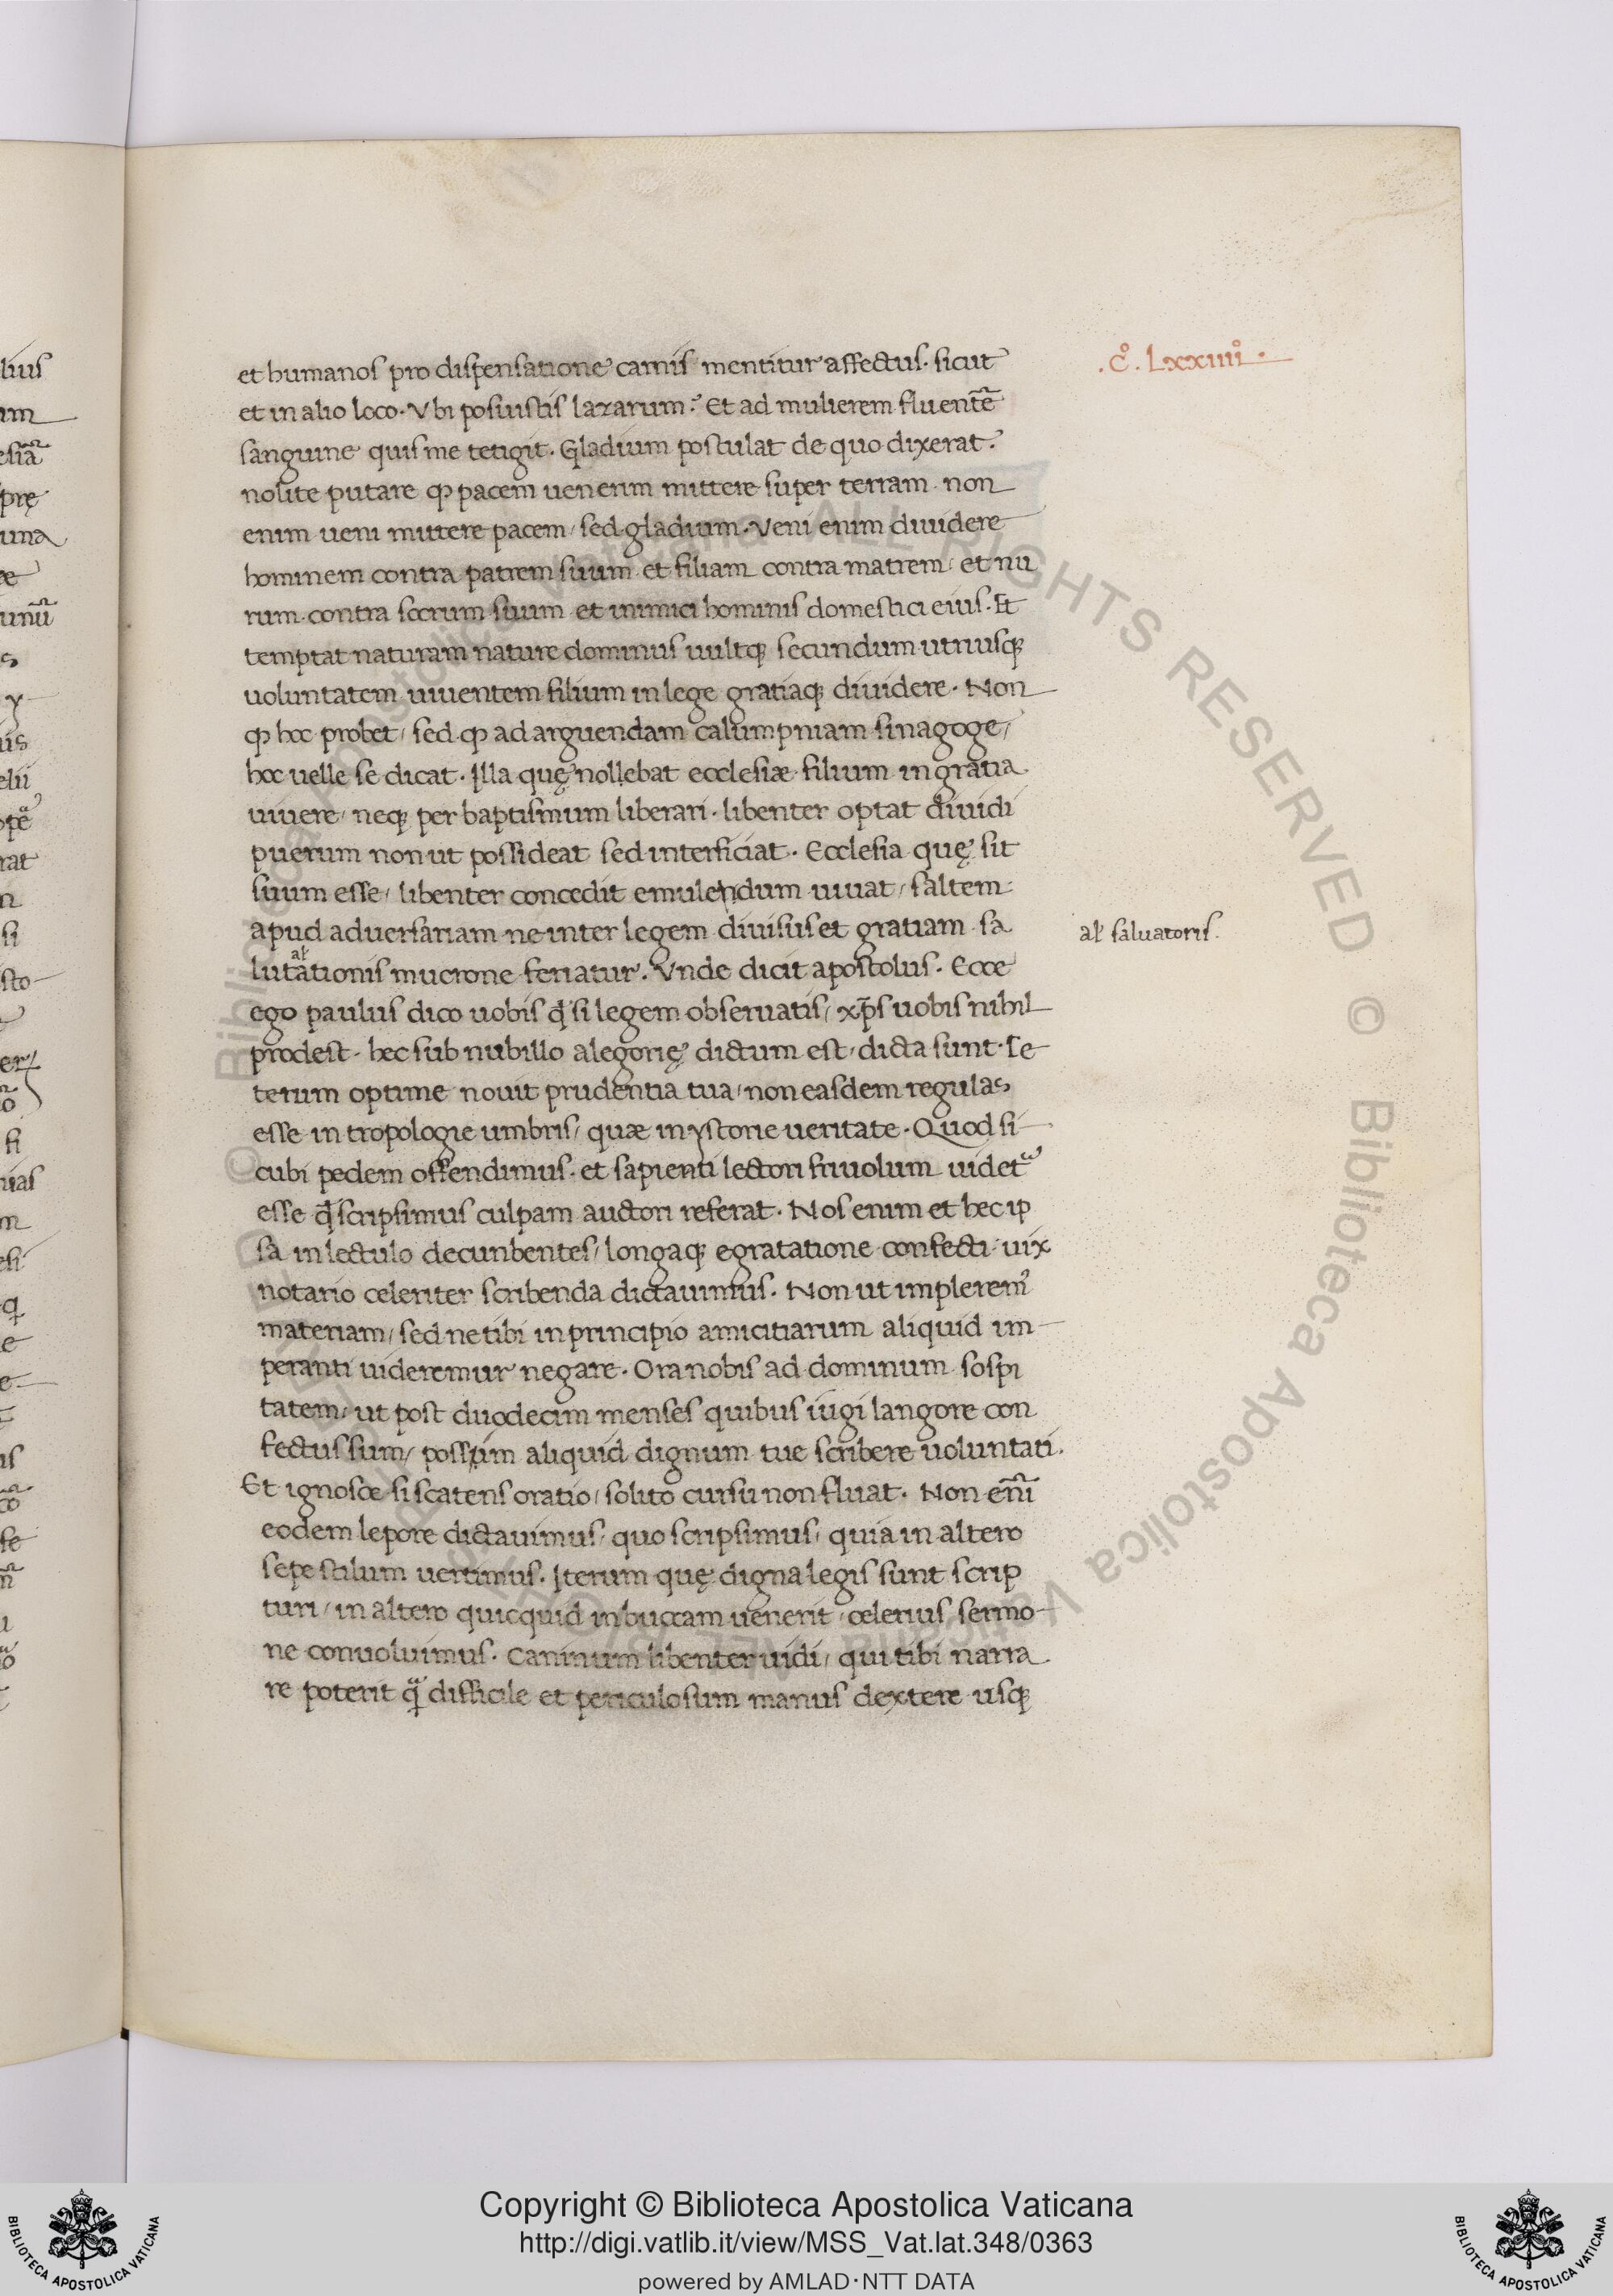 et humanos pro dispensatione carnis mentitur affectus. sicut
.c̊. Lxxiiii̊.
et in alio loco. Vbi posuistis lazarum? Et ad mulierem fluentē
sanguine quis me tetigit. Gladium postulat de quo dixerat?
nolite putare ꝙ pacem uenerim mittere super terram non
enim ueni mittere pacem, sed gladium. Veni enim diuidere
hominem contra patrem suum et filiam contra matrem, et nu
rum contra socrum suum et inimici hominis domestici eius. Et
temptat naturam nature dominus uultq; secundum utriusq;
uoluntatem uiuentem filium in lege gratiaq; diuidere. Non
ꝙ hoc probet, sed ꝙ ad arguendam calumpniam sinagoge,
hoc uelle se dicat. Illa quę nollebat ecclesiæ filium in gratia
uiuere, neq; per baptismum liberari. libenter optat diuidi
puerum non ut possideat sed interficiat. Ecclesia quę sit
suum esse, libenter concedit emulendum uiuat, saltem
apud aduersariam ne inter legem diuisus et gratiam sa
al' saluatoris.
lutationis mucrone feriatur. Vnde dicit apostolus. Ecce
al'
ego paulus dico uobis q̄ si legem obseruatis, xp̄s uobis nihil
prodest. hec sub nubillo alegorię dictum est, dicta sunt. Ce
terum optime nouit prudentia tua, non easdem regulas
esse in tropologie umbris, quæ in ystorie ueritate. Quod si
cubi pedem offendimus. et sapienti lectori friuolum uidet᷑
esse q̄ scripsimus culpam auctori referat. Nos enim et hec ip
sa in lectulo decunbentes, longaq; egratatione confecti uix
notario celeriter scribenda dictauimus. Non ut implerem᾽
materiam, sed ne tibi in principio amicitiarum aliquid im
peranti uideremur negare. Ora nobis ad dominum sospi
tatem, ut post duodecim menses quibus iugi langore con
fectus sum, possim aliquid dignum tue scribere uoluntati.
Et ignosce si scatens oratio, solito cursu non fluat. Non eni᷑
eodem lepore dictauimus, quo scripsimus, quia in altero
sepe stilum uertimus. Iterum quę digna legis sunt scrip
turi, in altero quicquid in buccam uenerit, celerius sermo
ne conuoluimus. Caninum libenter uidi, qui tibi narra
re poterit q̄ difficile et periculosum manus dextere usq;
Copyright © Biblioteca Apostolica Vaticana
http://digi.vatlib.it/view/MSS_Vat.lat.348/0363
powered by AMLAD·NTT DATA